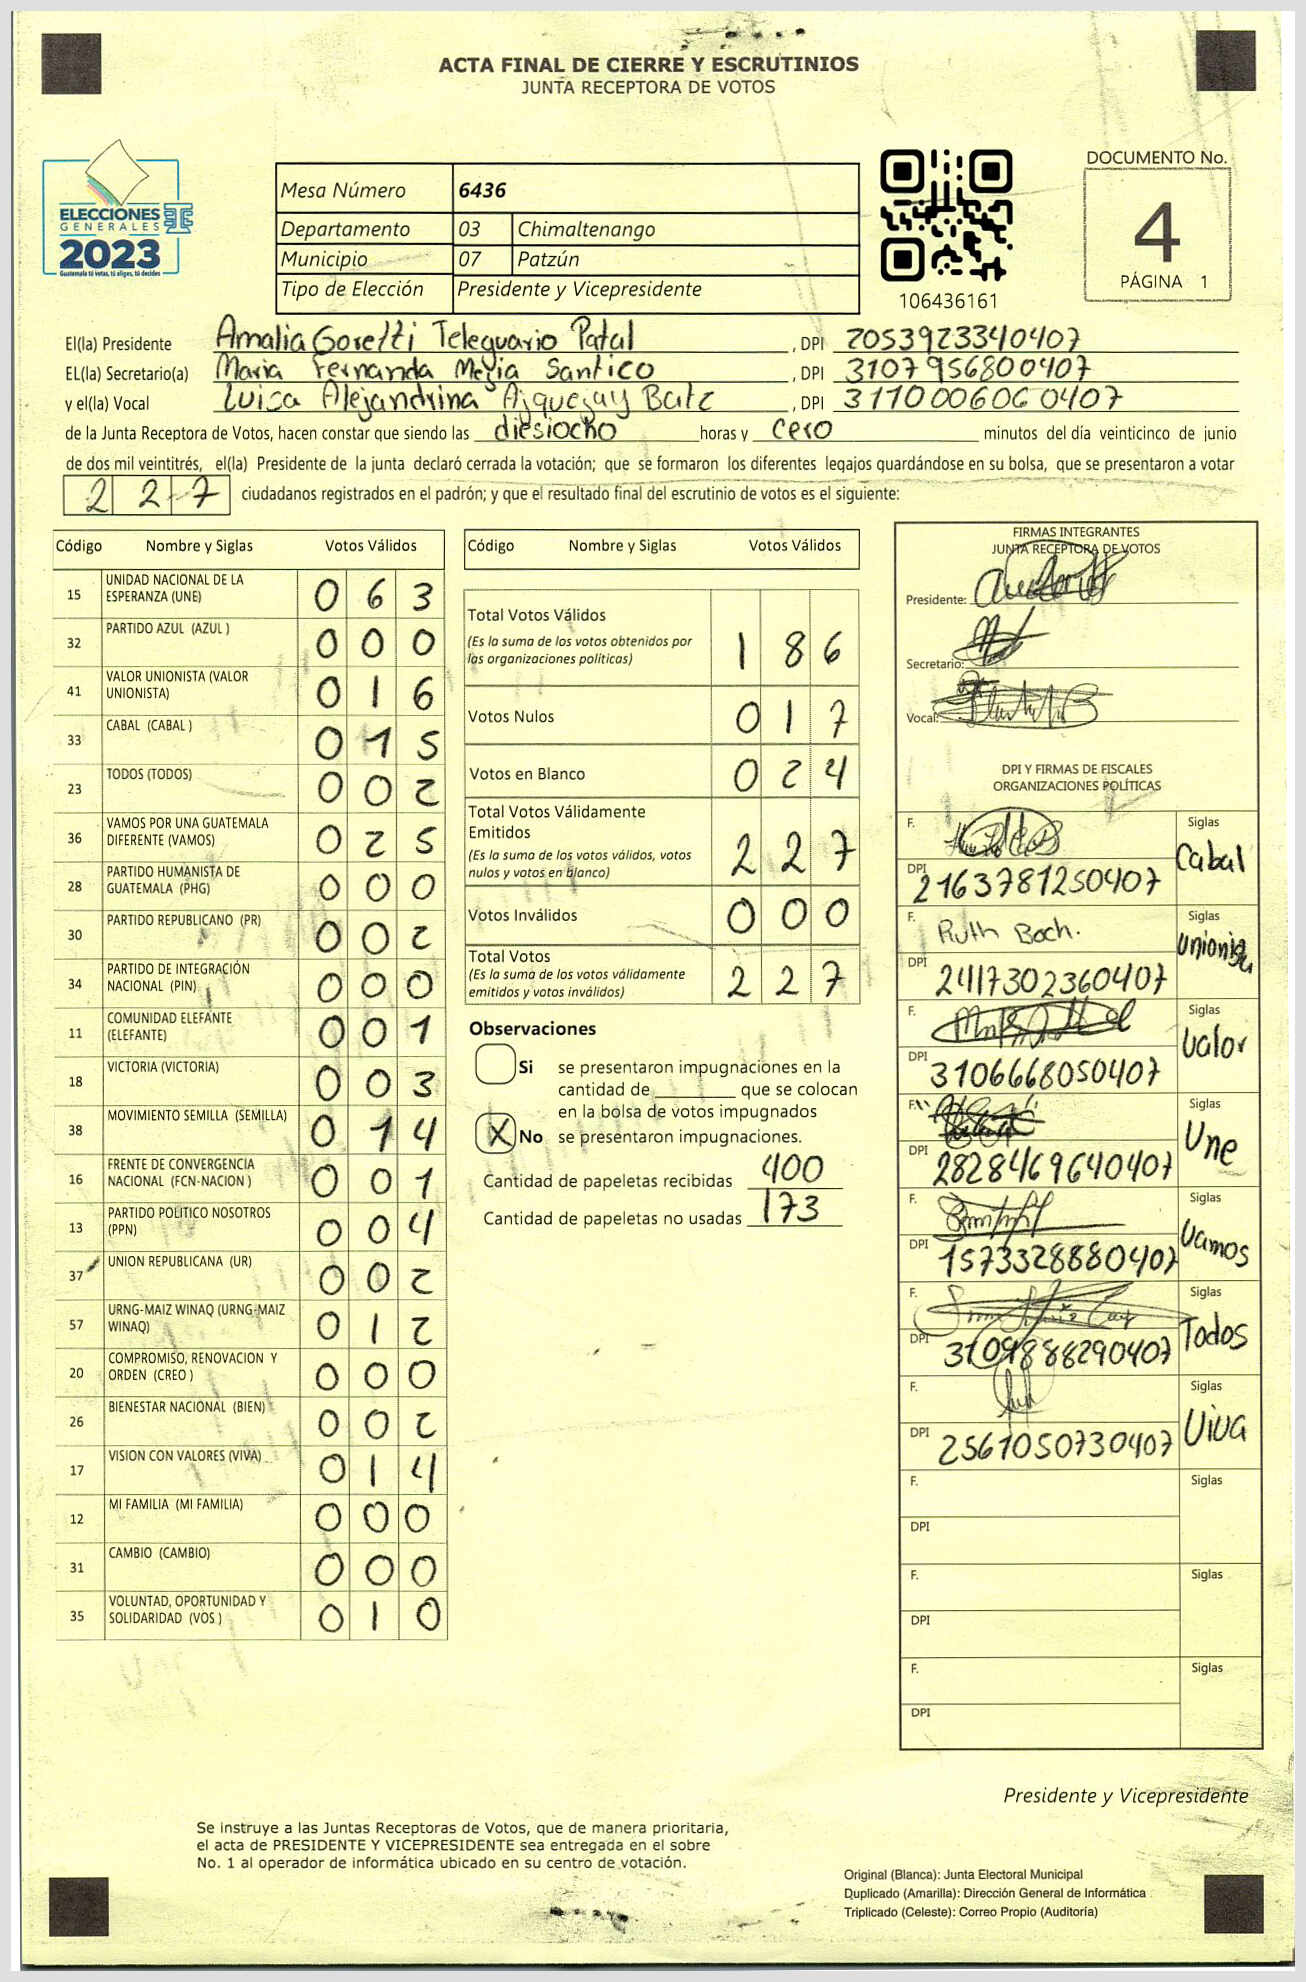 ACTA FINAL DE CIERRE Y ESCRUTINIOS
JUNTA RECEPTORA DE VOTOS
ELECCIONES
GENERALES
2023
Guatemala tú votas, tú eliges, tú decides
Mesa Número 6436
Departamento 03 Chimaltenango
Municipio 07 Patzún
Tipo de Elección Presidente y Vicepresidente
106436161
DOCUMENTO No.
4
PÁGINA 1
El(la) Presidente Amalia Goretti Teleguario Patal, DPI 2053923340407
EL(la) Secretario(a) Maria Fernanda Mejia Santico, DPI 3107956800407
y el(la) Vocal Luisa Alejandrina Ajquejay Batz, DPI 3110006060407
de la Junta Receptora de Votos, hacen constar que siendo las diesiocho horas y cero minutos del día veinticinco de junio
de dos mil veintitrés, el(la) Presidente de la junta declaró cerrada la votación; que se formaron los diferentes legajos guardándose en su bolsa, que se presentaron a votar
227 ciudadanos registrados en el padrón; y que el resultado final del escrutinio de votos es el siguiente:
Código Nombre y Siglas Votos Válidos
15 UNIDAD NACIONAL DE LA ESPERANZA (UNE) 063
32 PARTIDO AZUL (AZUL ) 000
41 VALOR UNIONISTA (VALOR UNIONISTA) 016
33 CABAL (CABAL ) 015
23 TODOS (TODOS) 002
36 VAMOS POR UNA GUATEMALA DIFERENTE (VAMOS) 025
28 PARTIDO HUMANISTA DE GUATEMALA (PHG) 000
30 PARTIDO REPUBLICANO (PR) 002
34 PARTIDO DE INTEGRACIÓN NACIONAL (PIN) 000
11 COMUNIDAD ELEFANTE (ELEFANTE) 001
18 VICTORIA (VICTORIA) 003
38 MOVIMIENTO SEMILLA (SEMILLA) 014
16 FRENTE DE CONVERGENCIA NACIONAL (FCN-NACION ) 001
13 PARTIDO POLITICO NOSOTROS (PPN) 004
37 UNION REPUBLICANA (UR) 002
57 URNG-MAIZ WINAQ (URNG-MAIZ WINAQ) 012
20 COMPROMISO, RENOVACION Y ORDEN (CREO ) 000
26 BIENESTAR NACIONAL (BIEN) 002
17 VISION CON VALORES (VIVA) 014
12 MI FAMILIA (MI FAMILIA) 000
31 CAMBIO (CAMBIO) 000
35 VOLUNTAD, OPORTUNIDAD Y SOLIDARIDAD (VOS ) 010
Código Nombre y Siglas Votos Válidos
Total Votos Válidos 186
(Es la suma de los votos obtenidos por
las organizaciones políticas)
Votos Nulos 017
Votos en Blanco 024
Total Votos Válidamente
Emitidos 227
(Es la suma de los votos válidos, votos
nulos y votos en blanco)
Votos Inválidos 000
Total Votos 227
(Es la suma de los votos válidamente
emitidos y votos inválidos)
Observaciones
Si se presentaron impugnaciones en la
cantidad de ________ que se colocan
en la bolsa de votos impugnados
X No se presentaron impugnaciones.
Cantidad de papeletas recibidas 400
Cantidad de papeletas no usadas 173
FIRMAS INTEGRANTES
JUNTA RECEPTORA DE VOTOS
Presidente:
Secretario:
Vocal:
DPI Y FIRMAS DE FISCALES
ORGANIZACIONES POLÍTICAS
F. Siglas Cabal
DPI 2163781250407
F. Ruth Boch. Siglas Unionista
DPI 2417302360407
F. Siglas Valor
DPI 3106668050407
F. Siglas Une
DPI 2828469640407
F. Siglas Vamos
DPI 1573328880407
F. Siglas Todos
DPI 3109888290407
F. Siglas Viva
DPI 2561050730407
F. Siglas
DPI
F. Siglas
DPI
F. Siglas
DPI
Presidente y Vicepresidente
Se instruye a las Juntas Receptoras de Votos, que de manera prioritaria,
el acta de PRESIDENTE Y VICEPRESIDENTE sea entregada en el sobre
No. 1 al operador de informática ubicado en su centro de votación.
Original (Blanca): Junta Electoral Municipal
Duplicado (Amarilla): Dirección General de Informática
Triplicado (Celeste): Correo Propio (Auditoría)